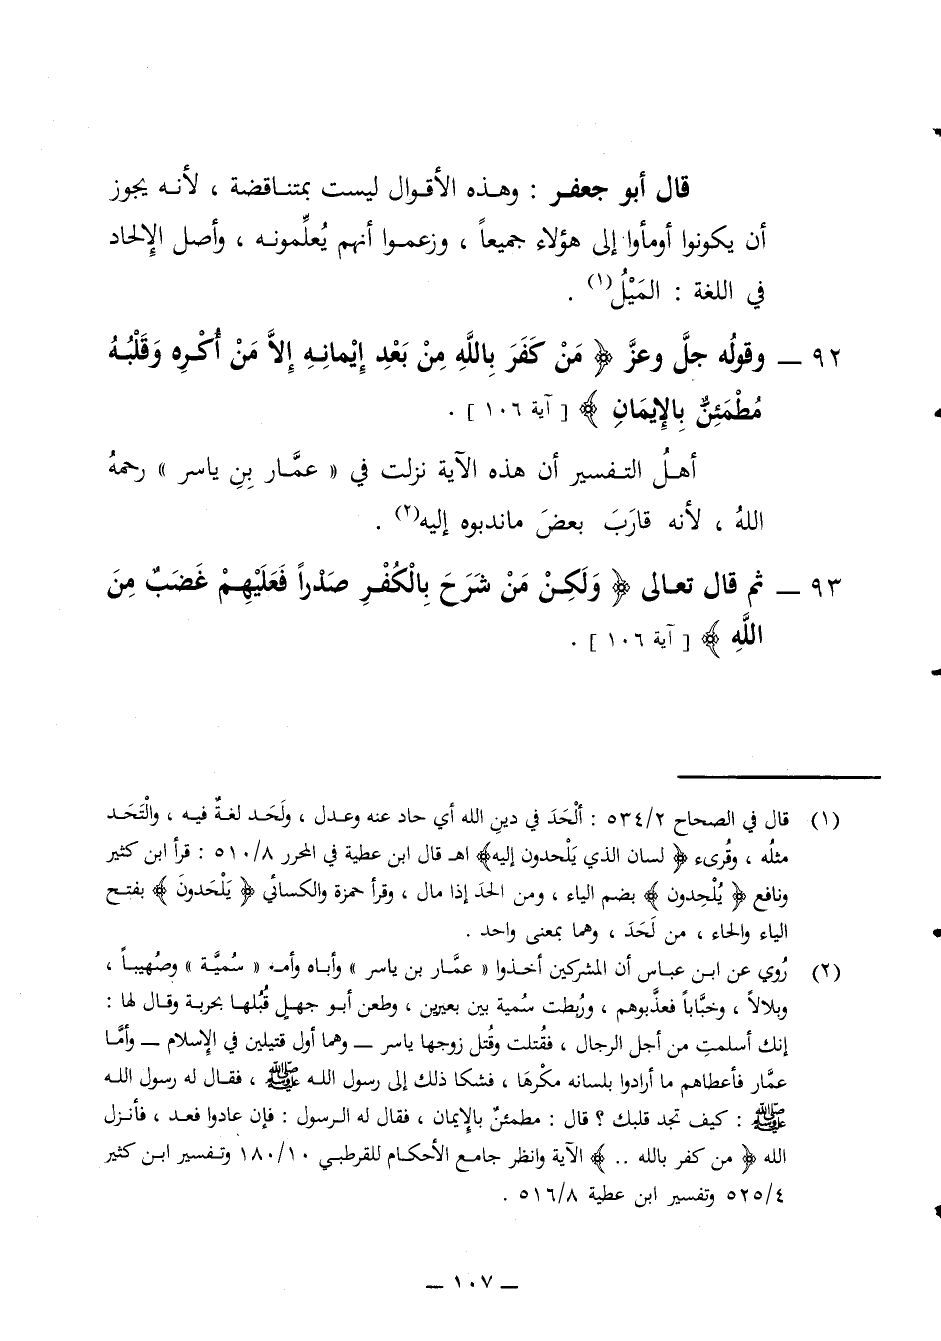 قال أبو جعفر : وهذه الأقوال ليست بمتناقضة ، لأنه يجوز
أن يكونوا أومأوا إلى هؤلاء جميعاً ، وزعموا أنهم يُعلِّمونه ، وأصل الإِلحاد
في اللغة : المَيْلُ(١) .
٩٢ ــ وقولُه جلَّ وعزَّ ﴿ مَنْ كَفَرَ بِاللَّهِ مِنْ بَعْدِ إِيْمانِهِ إلاَّ مَنْ أُكْرِه وَقَلْبُهُ
مُطْمَئِنٌّ بِالإِيمَانِ ﴾ [ آية ١٠٦ ] .
أهلُ التفسير أن هذه الآية نزلت في « عمَّار بِنِ ياسر » رحمهُ
اللهُ ، لأنه قارَبَ بعضَ ماندبوه إليه(٢) .
٩٣ ــ ثم قال تعالى ﴿ وَلَكِنْ مَنْ شَرَحَ بِالْكُفْرِ صَدْراً فَعَلَيْهِمْ غَضَبٌ مِنَ
اللَّهِ ﴾ [ آية ١٠٦ ] .
(١) قال في الصحاح ٥٣٤/٢ : ألْحَدَ في دينِ الله أي حاد عنه وعدل ، ولَحَد لغةٌ فيه ، والْتَحَد
مثلُه ، وقُرىء ﴿ لسان الذي يَلْحدون إليه﴾ اهـ قال ابن عطية في المحرر ٥١٠/٨ : قرأ ابن كثير
ونافع ﴿ يُلْحِدون ﴾ بضم الياء ، ومن الحدَ إذا مال ، وقرأ حمزة والكسائي ﴿ يَلْحَدونَ ﴾ بفتح
الياء والحاء ، من لَحَدَ ، وهما بمعنى واحد .
(٢) رُوي عن ابن عباس أن المشركين أخذوا « عمَّار بن ياسر » وأباه وأمه « سُميَّة » وصُهيباً ،
وبلالاً ، وخبَّاباً فعذَّبوهم ، ورُبطت سُمية بين بعيرين ، وطعن أبو جهل قُبُلها بحربة وقال لها :
إنك أسلمتِ من أجل الرجال ، فقُتلت وقُتل زوجها ياسر ــ وهما أول قتيلين في الإِسلام ــ وأمَّا
عمَّار فأعطاهم ما أرادوا بلسانه مكْرهَا ، فشكا ذلك إلى رسول الله ﷺ ، فقال له رسول الله
ﷺ : كيف تجد قلبك ؟ قال : مطمئنٌ بالإِيمان ، فقال له الرسول : فإن عادوا فعد ، فأنزل
الله ﴿ من كفر بالله .. ﴾ الآية وانظر جامع الأحكام للقرطبي ١٨٠/١٠ وتفسير ابن كثير
٥٢٥/٤ وتفسير ابن عطية ٥١٦/٨ .
ــ ١٠٧ ــ